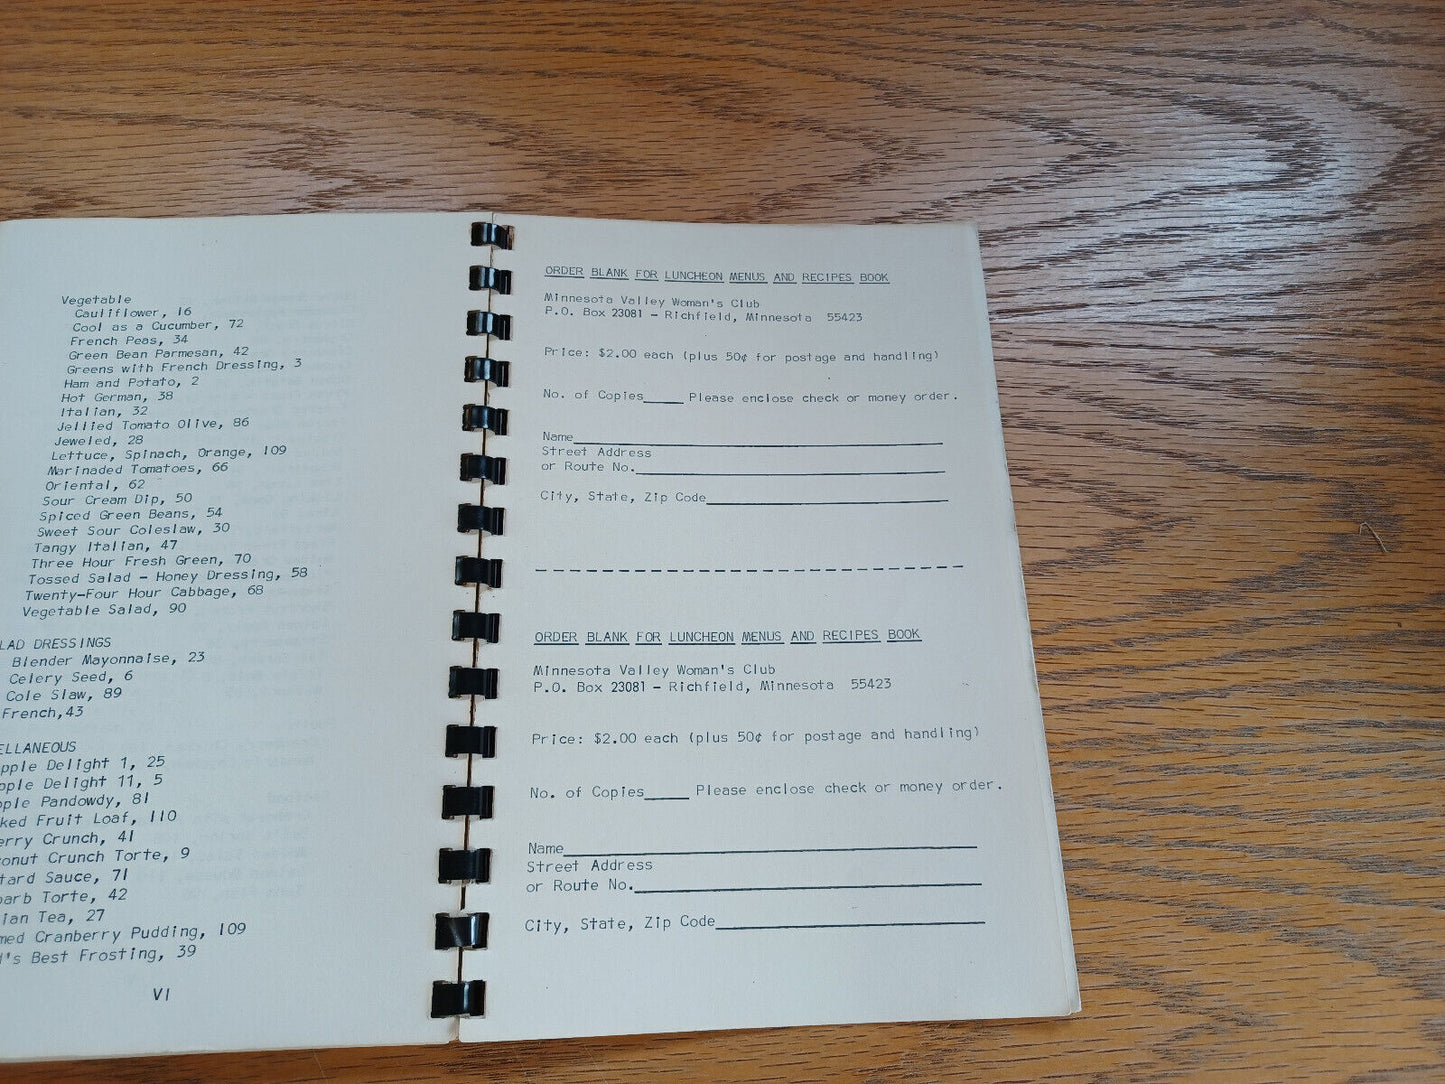 Vegetable
Cauliflower, 16
Cool as a Cucumber, 72
French Peas, 34
Green Bean Parmesan, 42
Greens with French Dressing, 3
Ham and Potato, 2
Hot German, 38
Italian, 32
Jellied Tomato Olive, 86
Jeweled, 28
Lettuce, Spinach, Orange, 109
Marinaded Tomatoes, 66
Oriental, 62
Sour Cream Dip, 50
Spiced Green Beans, 54
Sweet Sour Coleslaw, 30
Tangy Italian, 47
Three Hour Fresh Green, 70
Tossed Salad - Honey Dressing, 58
Twenty-Four Hour Cabbage, 68
Vegetable Salad, 90
LAD DRESSINGS
Blender Mayonnaise, 23
Celery Seed, 6
Cole Slaw, 89
French,43
ELLANEOUS
pple Delight 1, 25
pple Delight 11, 5
ple Pandowdy, 81
ked Fruit Loaf, 110
erry Crunch, 41
conut Crunch Torte, 9
tard Sauce, 71
barb Torte, 42
ian Tea, 27
med Cranberry Pudding, 109
's Best Frosting, 39
VI
ORDER BLANK FOR LUNCHEON MENUS AND RECIPES BOOK
Minnesota Valley Woman's Club
P.O. Box 23081 - Richfield, Minnesota 55423
Price: $2.00 each (plus 50¢ for postage and handling)
No. of Copies_____ Please enclose check or money order.
Name
Street Address
or Route No.
City, State, Zip Code
ORDER BLANK FOR LUNCHEON MENUS AND RECIPES BOOK
Minnesota Valley Woman's Club
P.O. Box 23081 - Richfield, Minnesota 55423
Price: $2.00 each (plus 50¢ for postage and handling)
No. of Copies_____ Please enclose check or money order.
Name
Street Address
or Route No.
City, State, Zip Code